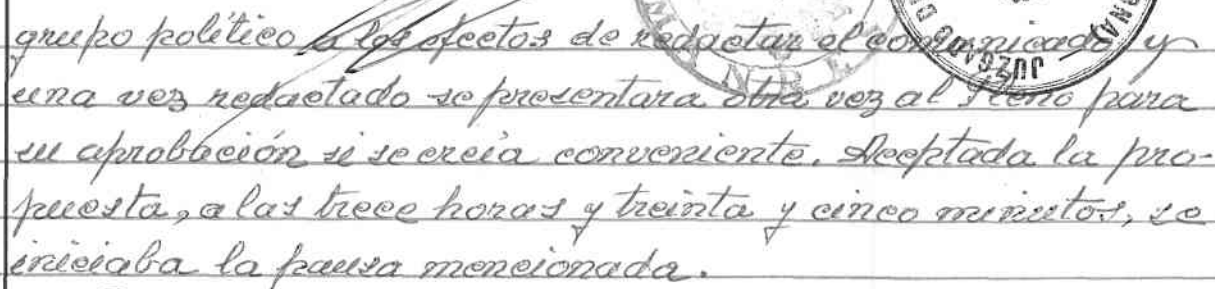 grupo político a los efectos de redactar el comunicado y
una vez redactado se presentara otra vez al Pleno para
su aprobación si se creía conveniente. Aceptada la pro-
puesta, a las trece horas y treinta y cinco minutos, se
iniciaba la pausa mencionada.
MANRE
JUZGADO D
ONA)